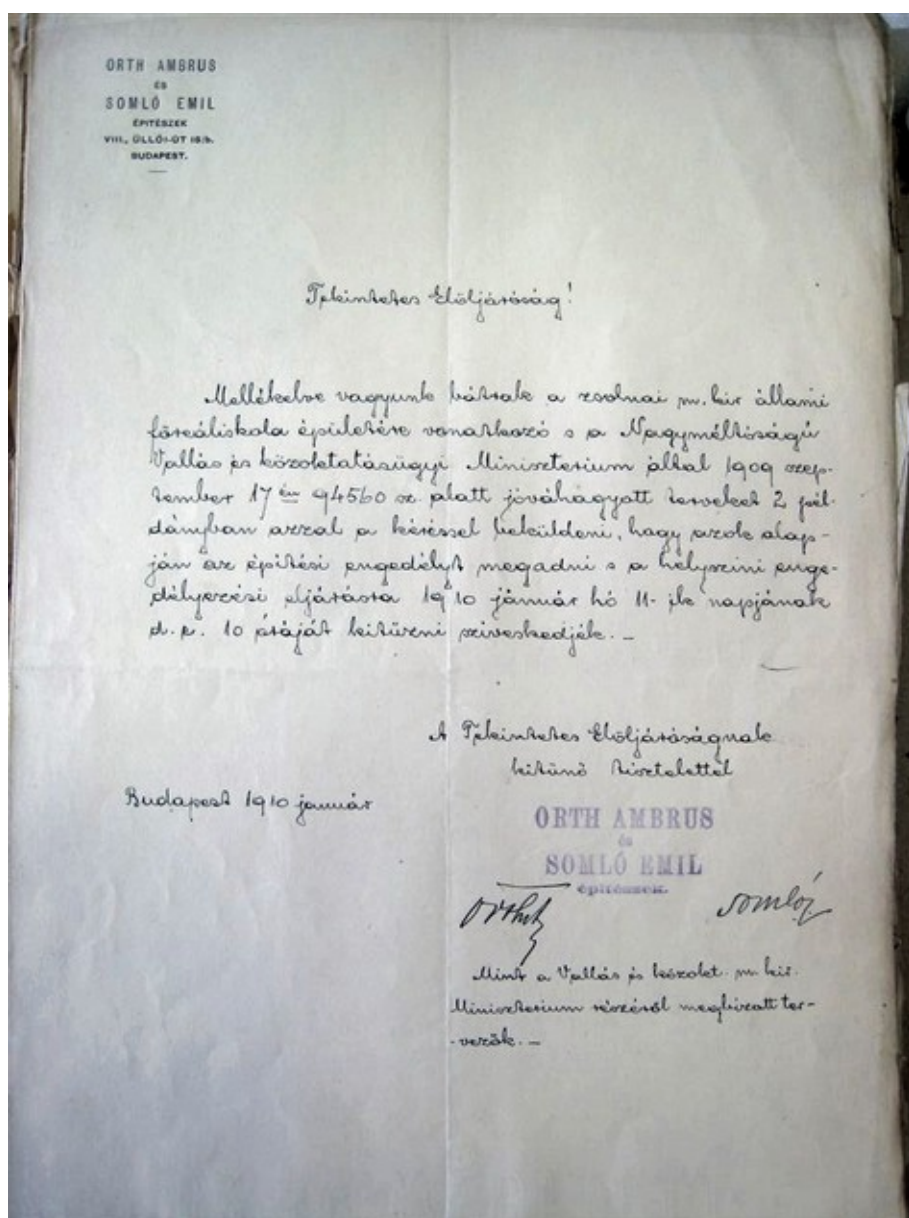 ORTH AMBRUS
ÉS
SOMLÓ EMIL
ÉPITÉSZEK
VIII., ÜLLŐI-UT 16/b.
BUDAPEST.
Tekintetes Elöljáróság!
Mellékelve vagyunk bátrak a zsolnai m. kir állami
főreáliskola épületére vonatkozó s a Nagyméltóságú
Vallás és közoktatásügyi Ministerium által 1909 szep-
tember 17 én 94560 sz. alatt jóváhagyott terveket 2 pél-
dányban azzal a kéréssel beküldeni, hogy azok alap-
ján az építési engedélyt megadni s a helyszini enge-
délyezési eljárásra 1910 január hó 11-ik napjának
d. e. 10 óráját kitűzni sziveskedjék. –
A Tekintetes Elöljáróságnak
kitünő tisztelettel
Budapest 1910 január
ORTH AMBRUS
és
SOMLÓ EMIL
épitészek.
Orth
Somló
Mint a Vallás és közokt. m. kir.
Ministerium részéről megbizott ter-
-vezők. –